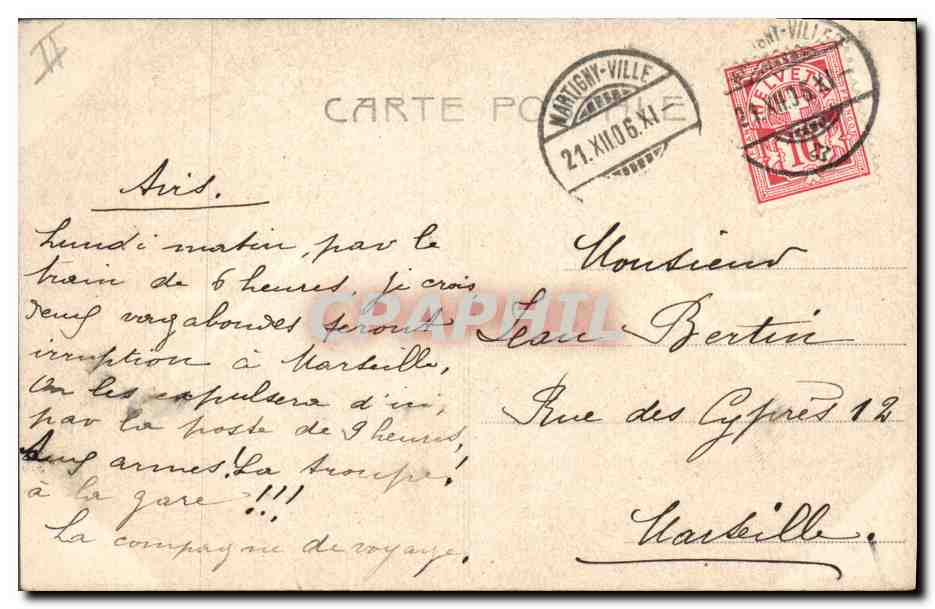 II
CARTE POSTALE
MARTIGNY-VILLE
21.XII.06.XI
MARTIGNY-VILLE
21.XII.06.XI
HELVETIA
10
Avis.
Lundi matin, par le
train de 6 heures, je crois
deux vagabondes feront
irruption à Marseille,
on les expulsera d'ici,
par la poste de 9 heures,
Aux armes! La troupe!
à la gare !!!
La compagne de voyage.
Monsieur
Jean Bertin
Rue des Cyprès 12
Marseille.
CPAPHIL